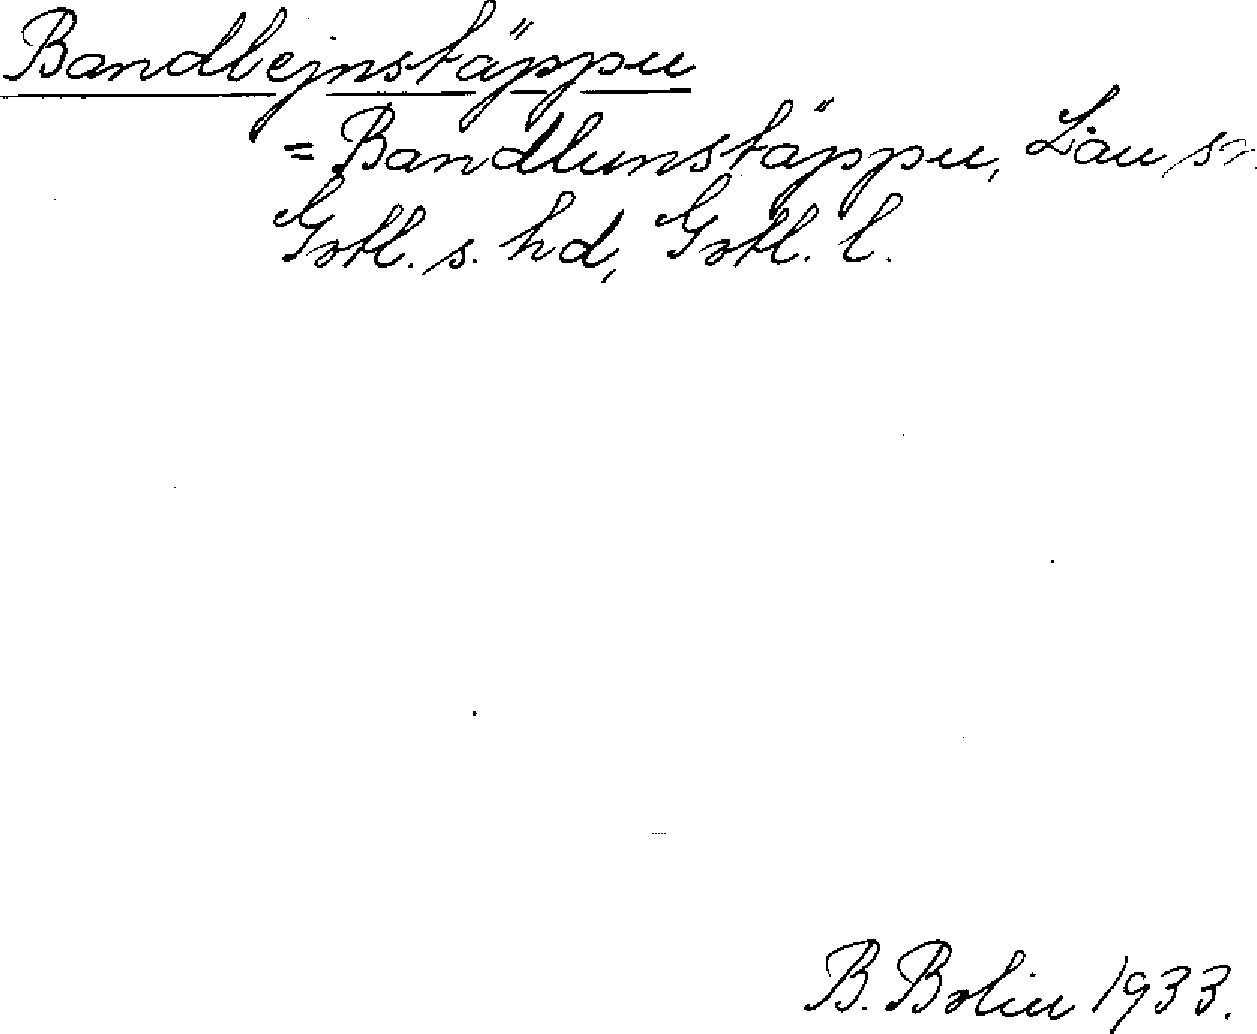 Bandlejnstäppu
= Bandlunstäppu, Lau sn.
Gotl. s. hd, Gotl. l.
B. Bolin 1933.